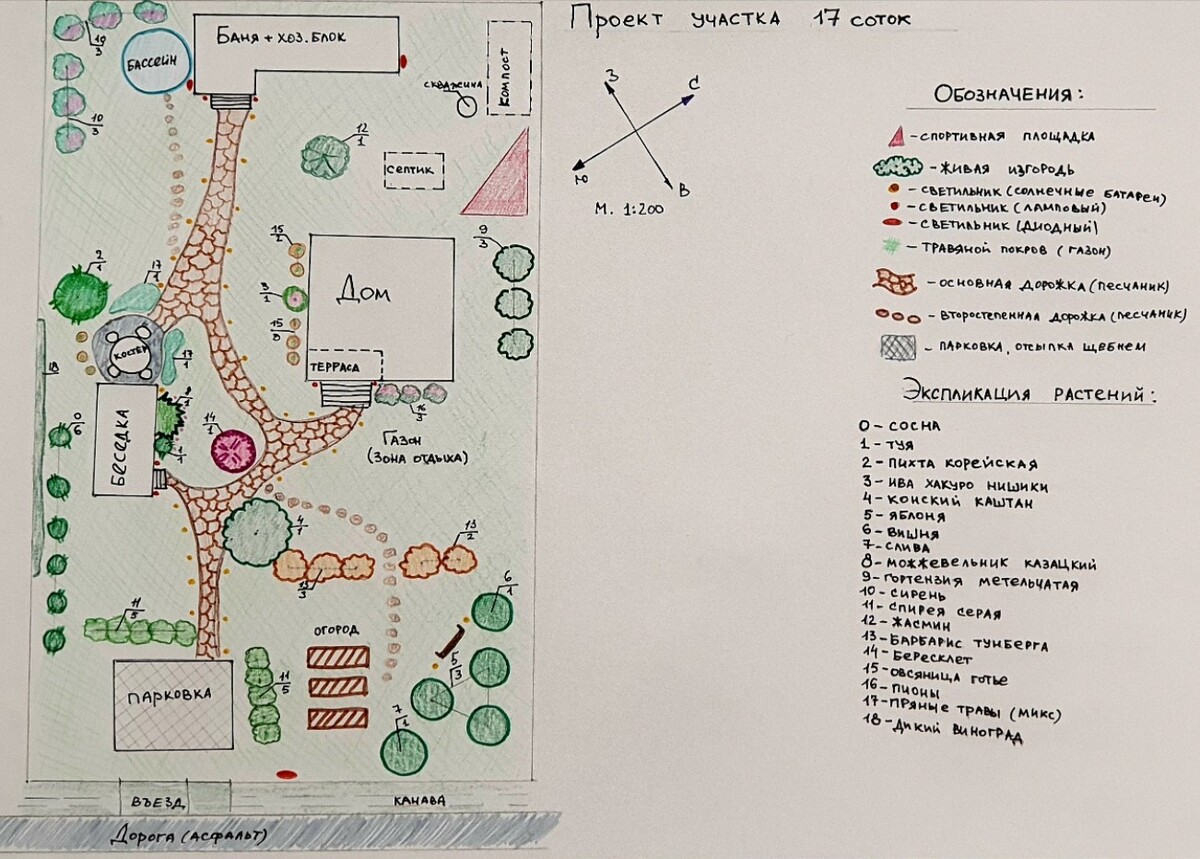 Проект участка 17 соток
10
3
Баня + хоз. блок
Бассейн
скважина
компост
10
3
12
1
септик
З
С
Ю
В
М. 1:200
Обозначения:
- спортивная площадка
- живая изгородь
- светильник (солнечные батареи)
- светильник (ламповый)
- светильник (диодный)
- травяной покров (газон)
- основная дорожка (песчаник)
- второстепенная дорожка (песчаник)
- парковка, отсыпка щебнем
15
2
9
3
2
1
17
1
3
1
Дом
15
3
Костёр
17
1
терраса
18
8
1
16
3
0
6
беседка
14
1
1
1
Газон
(Зона отдыха)
4
1
13
2
13
3
6
1
11
5
огород
5
3
11
5
парковка
7
1
въезд
канава
Дорога (асфальт)
Экспликация растений:
0 - сосна
1 - туя
2 - пихта корейская
3 - ива хакуро нишики
4 - конский каштан
5 - яблоня
6 - вишня
7 - слива
8 - можжевельник казацкий
9 - гортензия метельчатая
10 - сирень
11 - спирея серая
12 - жасмин
13 - барбарис тунберга
14 - бересклет
15 - овсяница готье
16 - пионы
17 - пряные травы (микс)
18 - дикий виноград